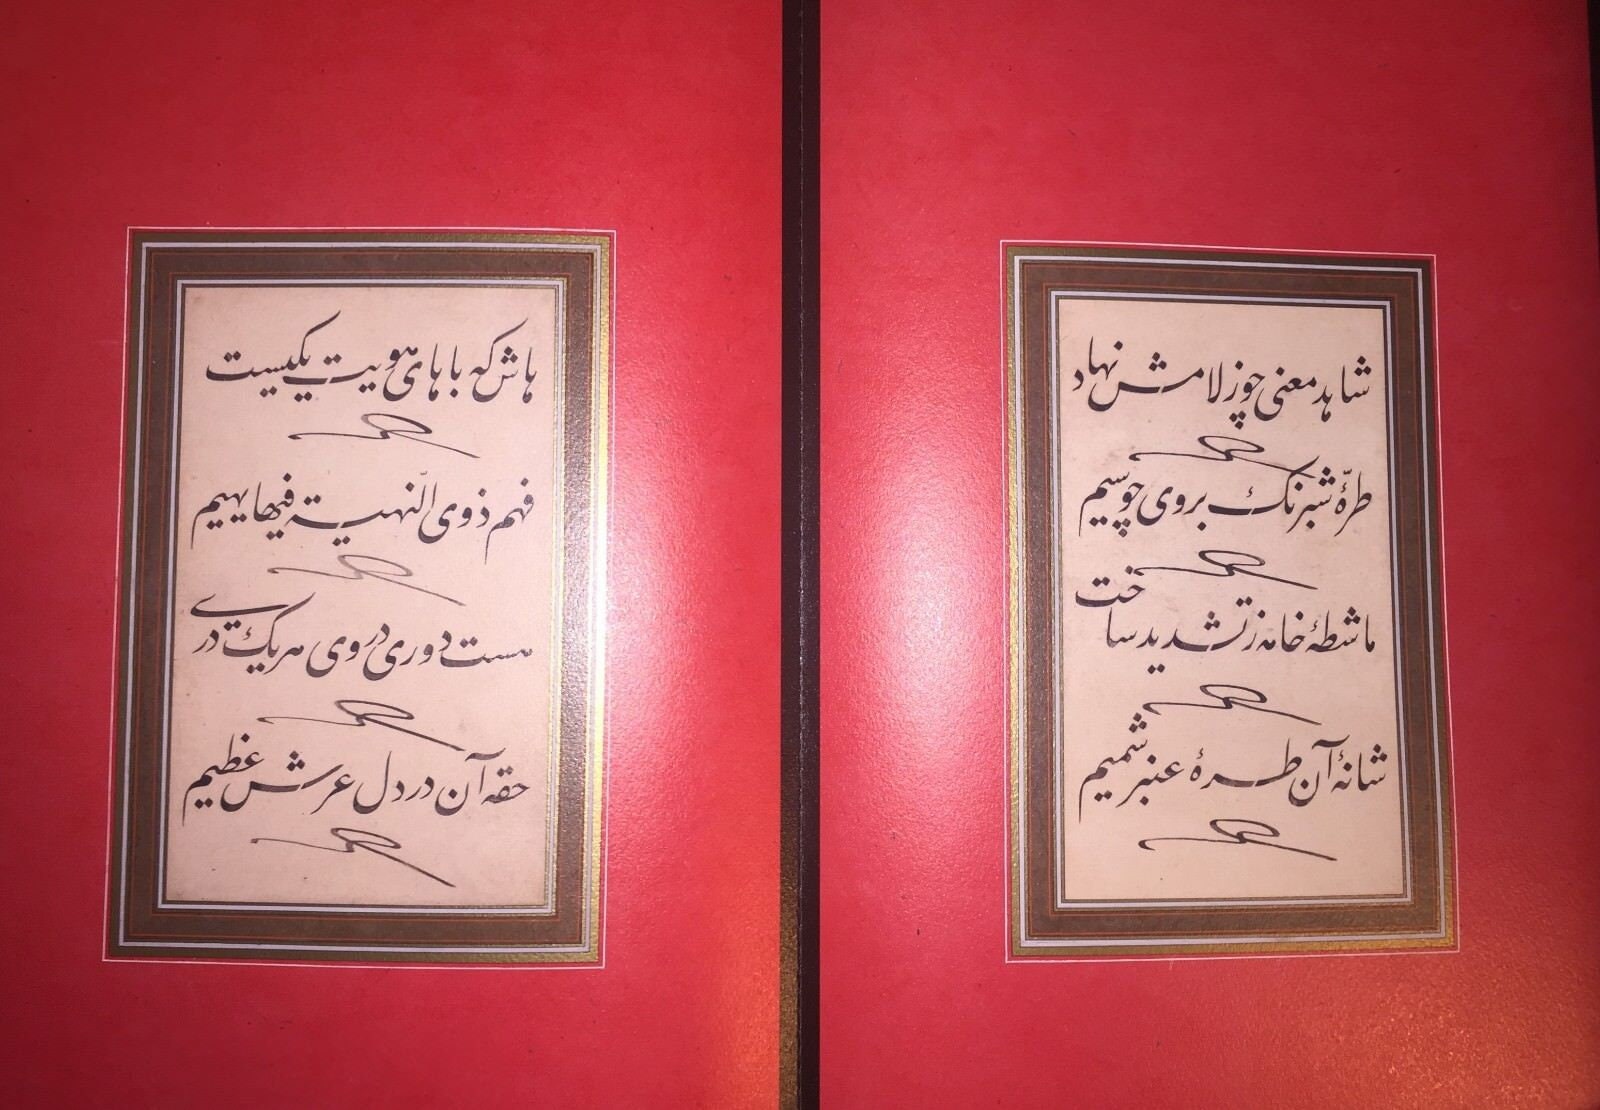 شاهد معنی چو ز لامش نهاد
طرّهٔ شبرنک بروی چو سیم
ماشطهٔ خامه ز تشدید ساخت
شانهٔ آن طرهٔ عنبر شمیم
هاش که با های هویت یکیست
فهم ذوی النّهیة فیها یهیم
هست دو دری در وی هر یک دری
حقه آن در دل عرش عظیم